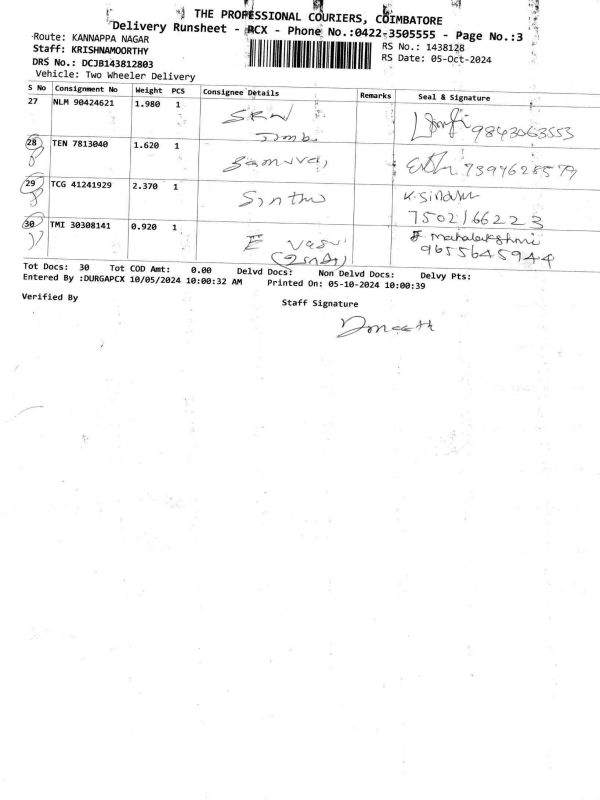 THE PROFESSIONAL COURIERS, COIMBATORE
Delivery Runsheet - RCX - Phone No.:0422-3505555 - Page No.:3
Route: KANNAPPA NAGAR
RS No.: 1438128
Staff: KRISHNAMOORTHY
RS Date: 05-Oct-2024
DRS No.: DCJB143812803
Vehicle: Two Wheeler Delivery
S No Consignment No Weight PCS Consignee Details Remarks Seal & Signature
27 NLM 90424621 1.980 1 9843063553
28 TEN 7813040 1.620 1
29 TCG 41241929 2.370 1 K. Sindhu
7502166223
30 TMI 30308141 0.920 1 E Vasu Mahalakshmi
9655645944
Tot Docs: 30 Tot COD Amt: 0.00 Delvd Docs: Non Delvd Docs: Delvy Pts:
Entered By :DURGAPCX 10/05/2024 10:00:32 AM Printed On: 05-10-2024 10:00:39
Verified By
Staff Signature